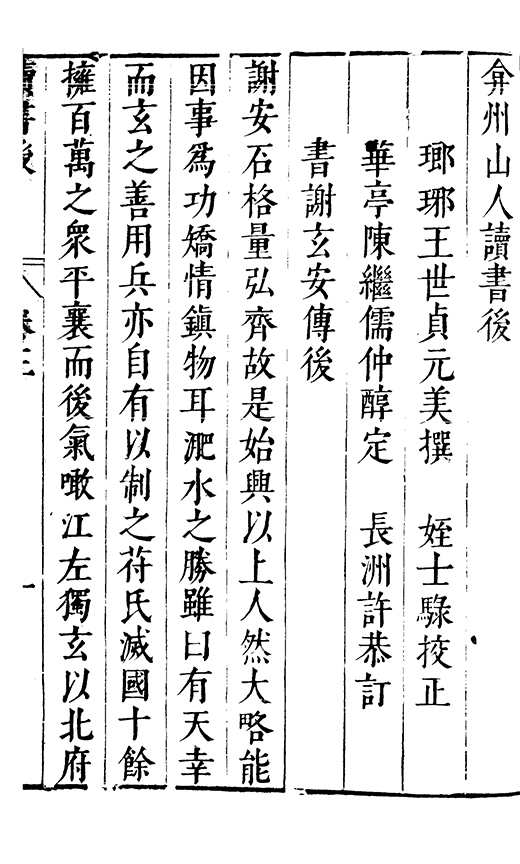 弇州山人讀書後
瑯琊王世貞元美撰　姪士騄挍正
華亭陳繼儒仲醇定　長洲許恭訂
書謝玄安傳後
謝安石格量弘齊故是始興以上人然大略能
因事爲功矯情鎮物耳淝水之勝雖曰有天幸
而玄之善用兵亦自有以制之苻氏滅國十餘
擁百萬之衆平襄而後氣噉江左獨玄以北府
讀書後　卷三　一